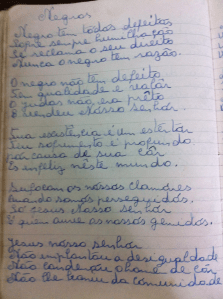 Negros
Negro tem todos defeitos
Sofre sempre humilhação
Se reclama o seu direito
Nunca o negro tem razão.
O negro não tem defeito
Tem qualidade e valor
O judas não era preto
E vendeu Nosso Senhor.
Tua existência é um estertor
Teu sofrimento é profundo
Por causa de sua cor
És infeliz neste mundo.
Sufocam os nossos clamores
Quando somos perseguidos
Só Jesus Nosso Senhor
É quem ouve os nossos gemidos.
Jesus nosso senhor
Não implantou a desigualdade
Não condenou o home de cor
Não lhe tramou da comunidade